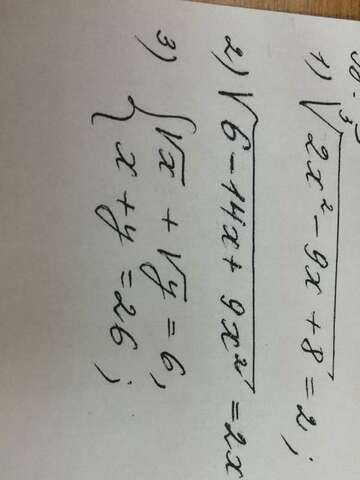 1) ∛(2x² - 9x + 8) = 2;
2) √(6 - 14x + 9x²) = 2x
3) { √x + √y = 6,
x + y = 26;